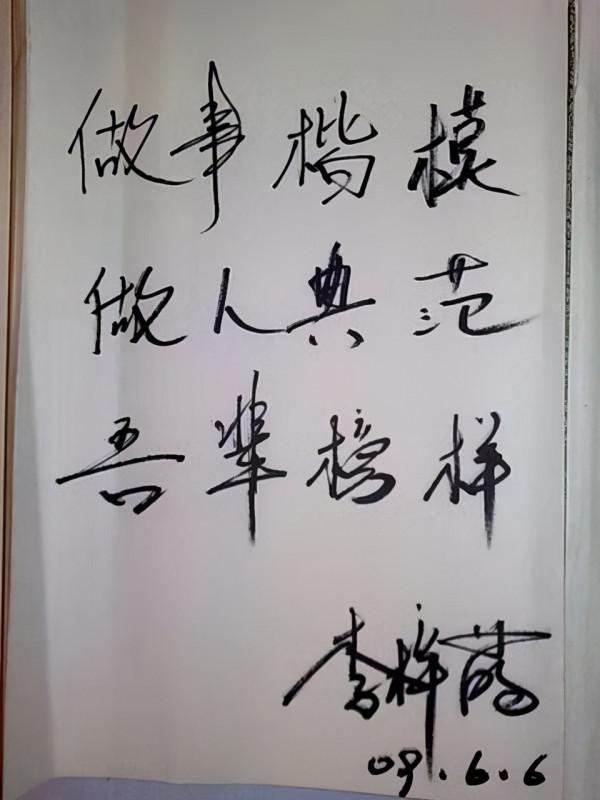 做事楷模
做人典范
吾辈榜样
李梓萌
09.6.6